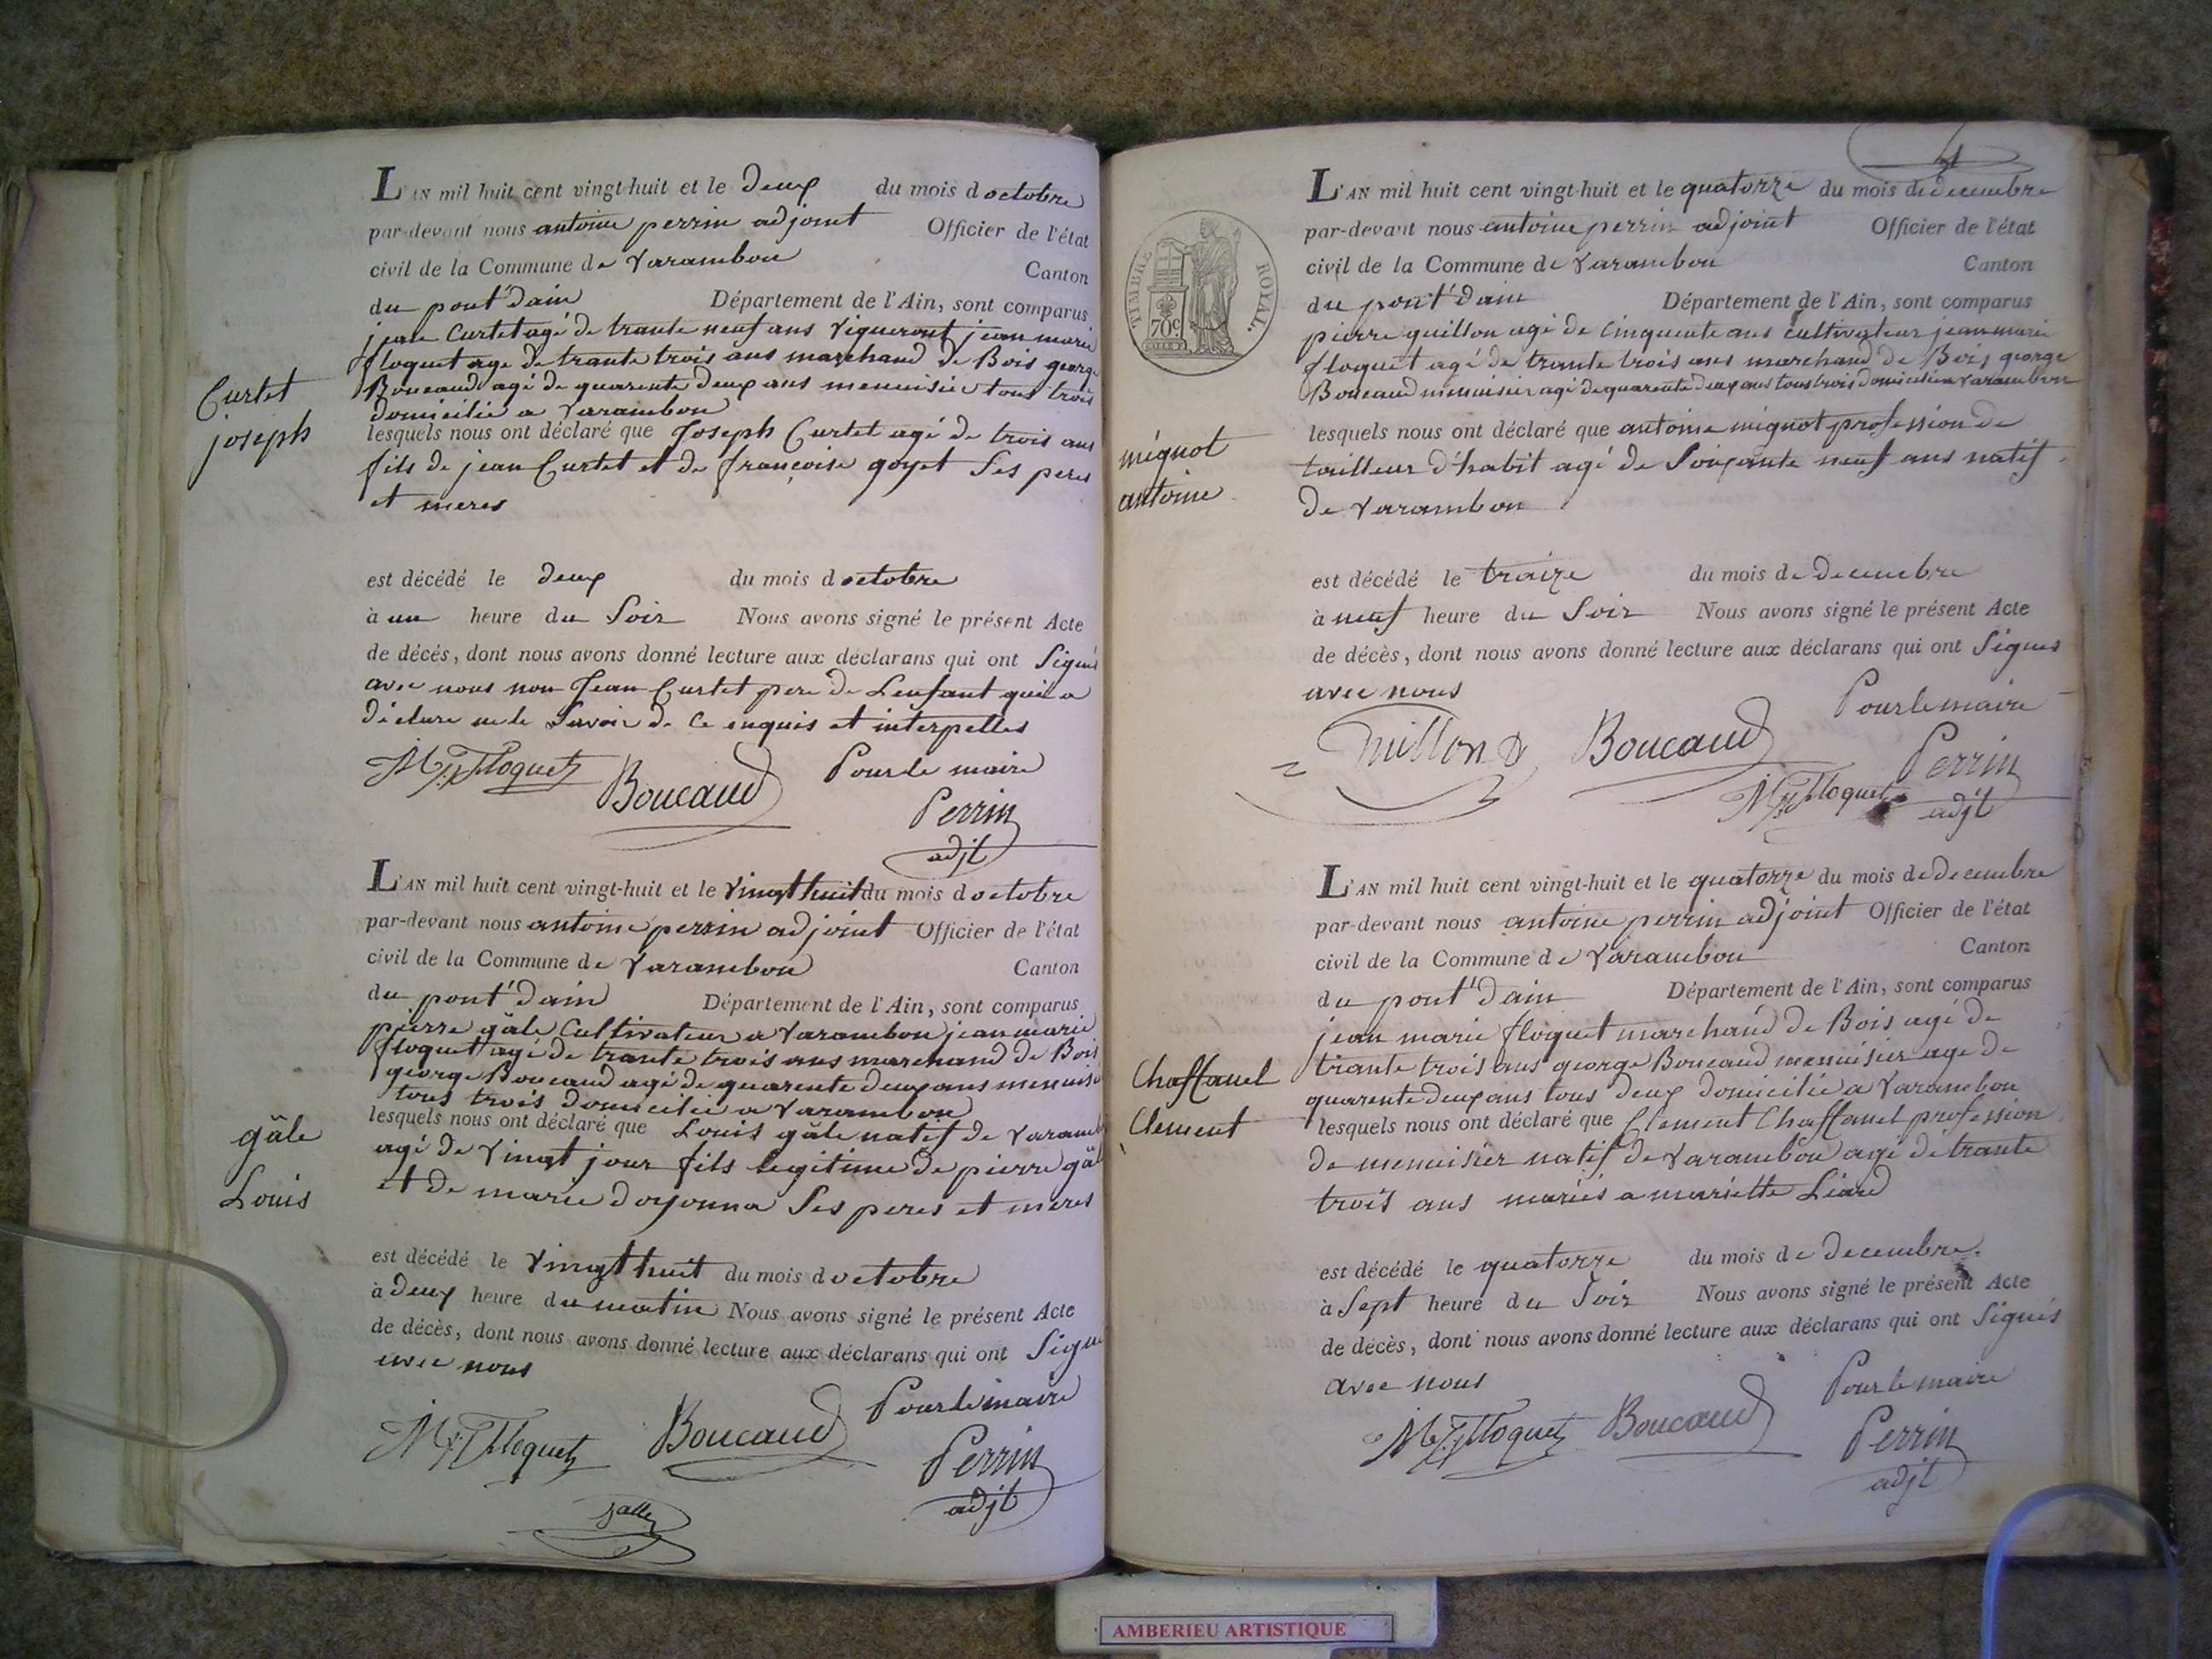 L'AN mil huit cent vingt-huit et le deux du mois d octobre
par-devant nous antoine perrin adjoint Officier de l'état
civil de la Commune de Varambon Canton
du pont d'ain Département de l'Ain, sont comparus
jean Curtet agé de trante neuf ans Vigneront jean marie
floquet age de trante trois ans marchand de Bois george
Boucaud agé de quarente deux ans menuisier tous trois
domicilié a Varambon
Curtet
joseph
lesquels nous ont déclaré que Joseph Curtet agé de trois ans
fils de jean Curtet et de françoise goyet Ses peres
et meres
est décédé le deux du mois d octobre
à un heure du Soir Nous avons signé le présent Acte
de décés, dont nous avons donné lecture aux déclarans qui ont Signés
avec nous non Jean Curtet pere de Lenfant qui a
déclare ne le Savoir de Ce enquis et interpelles
M Floquet Boucaud Pour le maire
Perrin
adjt
L'AN mil huit cent vingt-huit et le Vingt huit du mois d octobre
par-devant nous antoine perrin adjoint Officier de l'état
civil de la Commune de Varambon Canton
du pont d'ain Département de l'Ain, sont comparus
pierre gâle Cultivateur a Varambon jean marie
floquet agé de trante trois ans marchand de Bois
george Boucaud agé de quarente deux ans menuisi
tous trois domicilié a Varambon
gâle
Louis
lesquels nous ont déclaré que Louis gâle natif de Varamb
agé de Vingt jour fils legitime de pierre gâl
et de marie doyonna Ses peres et meres
est décédé le Vingt huit du mois d octobre
à deux heure du matin Nous avons signé le présent Acte
de décès, dont nous avons donné lecture aux déclarans qui ont Signe
avec nous
M Floquet Boucaud Pour le maire
Perrin
adjt
L'AN mil huit cent vingt-huit et le quatorze du mois de decembre
par-devant nous antoine perrin adjoint Officier de l'état
civil de la Commune de Varambon Canton
du pont d'ain Département de l'Ain, sont comparus
TIMBRE ROYAL
70c
pierre guillon agé de Cinquente ans cultivateur jean marie
floquet agé de trante trois ans marchand de Bois george
Boucaud menuisier agé de quarente deux ans tous trois domicilié a Varambon
mignot
antoine
lesquels nous ont déclaré que antoine mignot profession de
tailleur d'habit agé de Soixante neuf ans natif
de Varambon
est décédé le traize du mois de decembre
à neuf heure du Soir Nous avons signé le présent Acte
de décès, dont nous avons donné lecture aux déclarans qui ont Signés
avec nous Pour le maire
Boucaud Perrin
M Floquet adjt
L'AN mil huit cent vingt-huit et le quatorze du mois de decembre
par-devant nous antoine perrin adjoint Officier de l'état
civil de la Commune de Varambon Canton
du pont d'ain Département de l'Ain, sont comparus
jean marie floquet marchand de Bois agé de
trante trois ans george Boucaud menuisier age de
quarente deux ans tous deux domicilié a Varambon
Chaffanel
Clement
lesquels nous ont déclaré que Clement Chaffanel profession
de menuisier natif de Varambon agé de trante
trois ans mariés a mariette Liard
est décédé le quatorze du mois de decembre
à Sept heure du Soir Nous avons signé le présent Acte
de décès, dont nous avons donné lecture aux déclarans qui ont Signés
avec nous Pour le maire
M Floquet Boucaud Perrin
adjt
AMBERIEU ARTISTIQUE